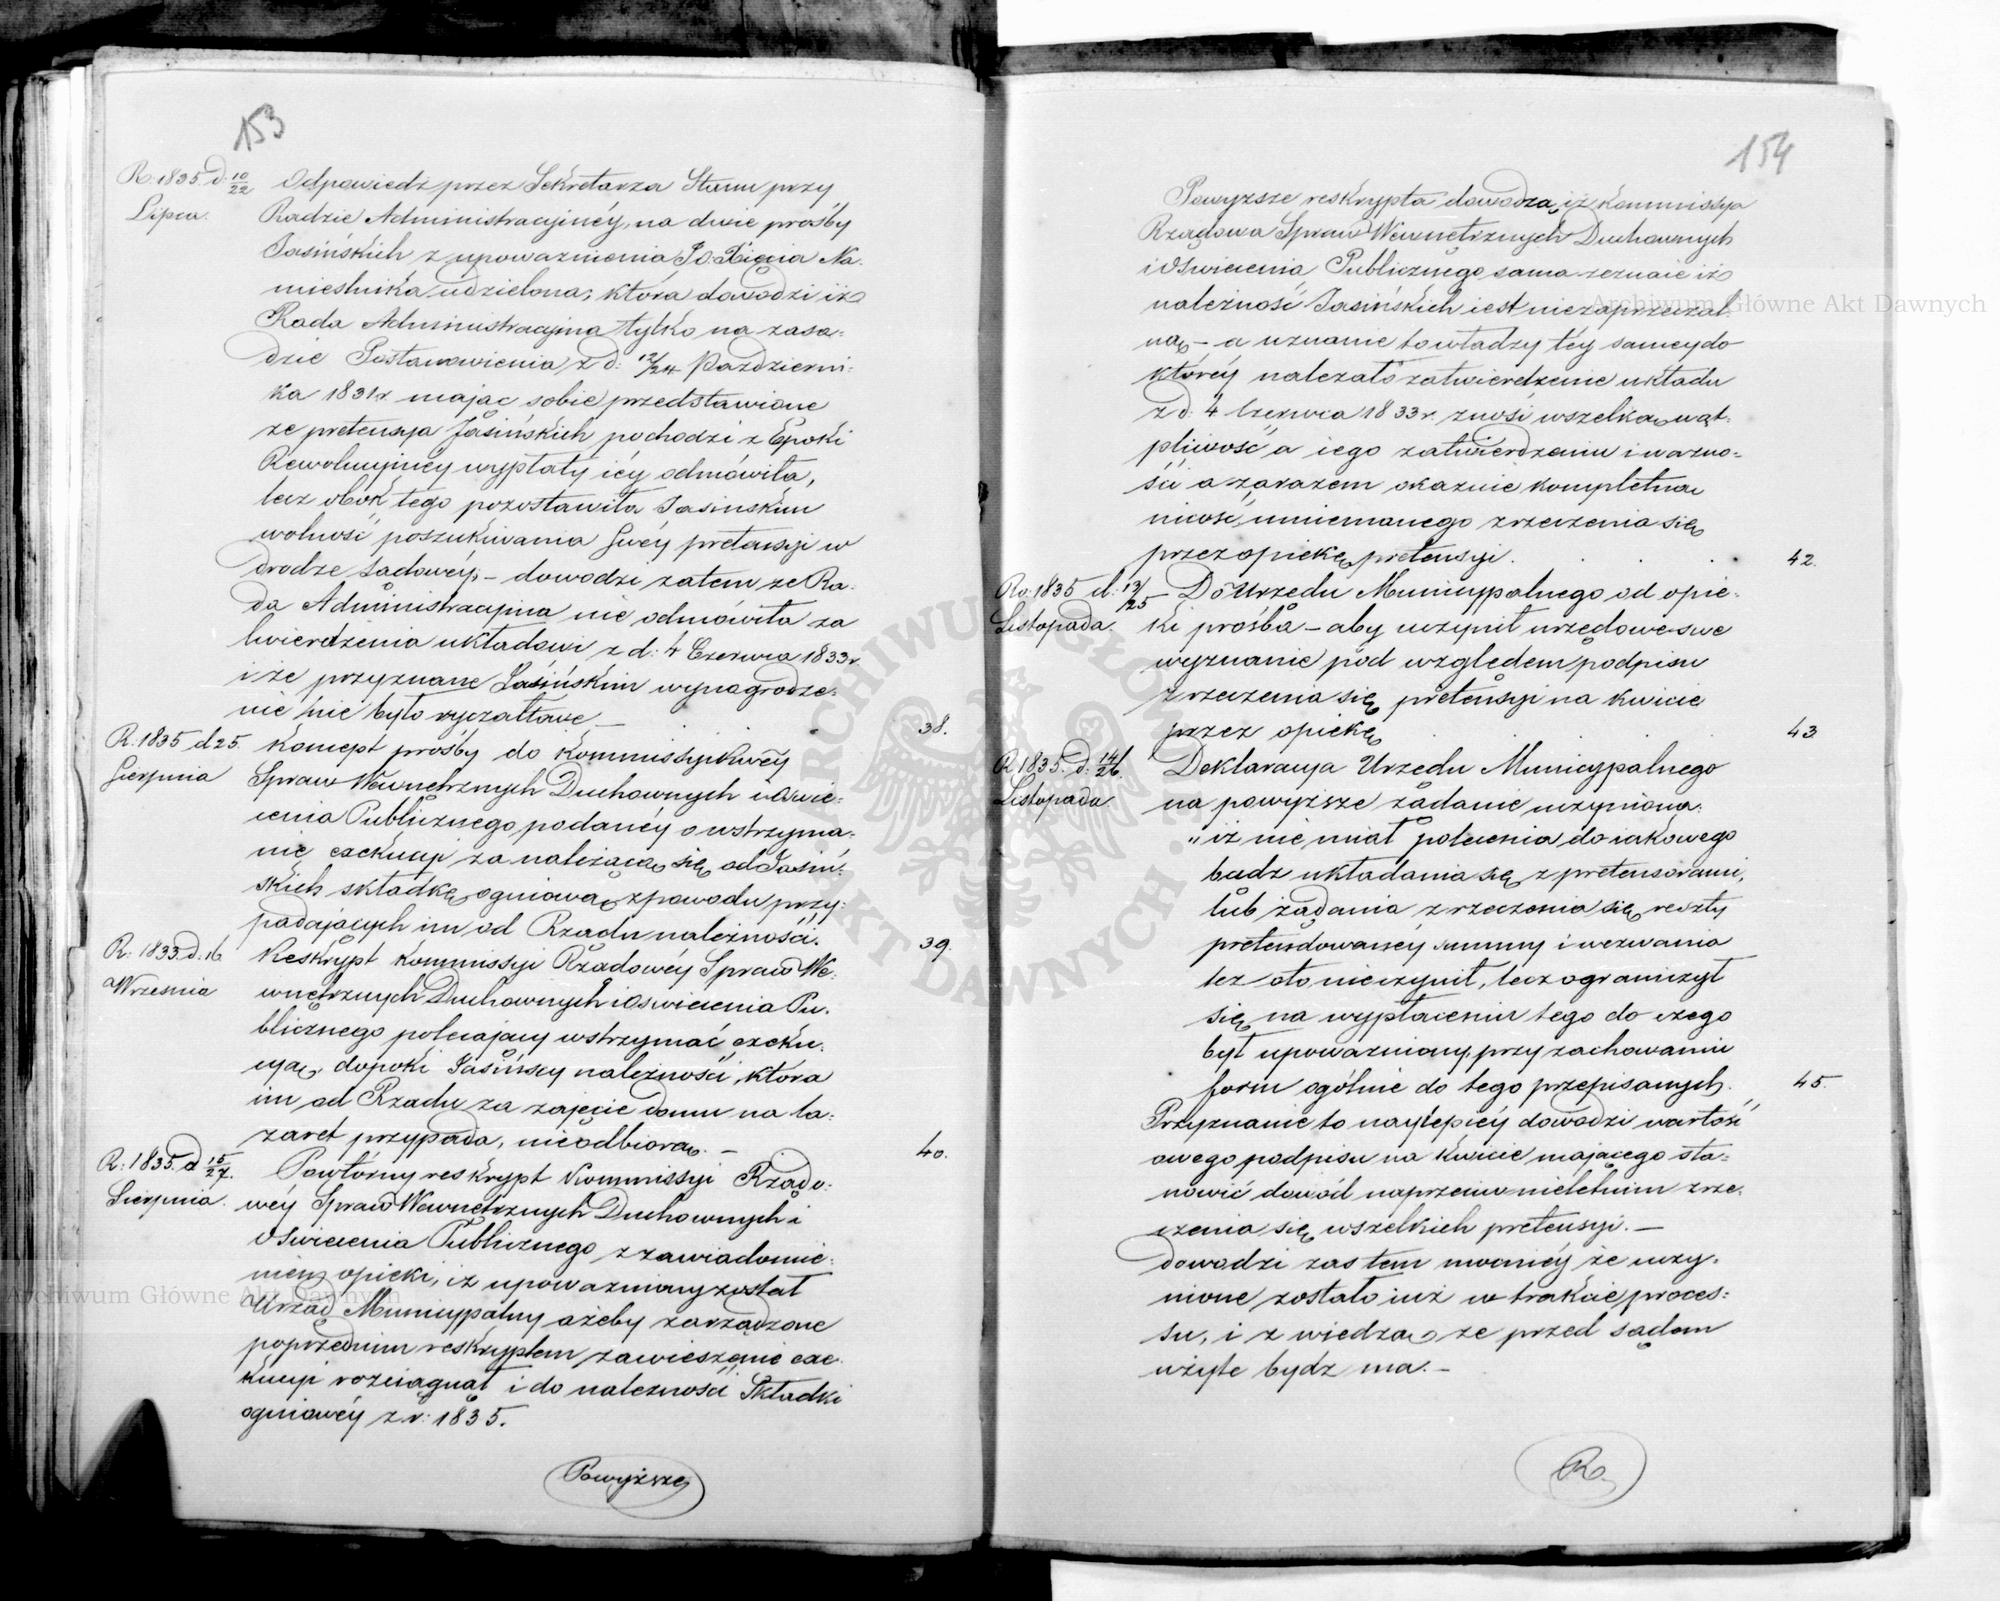 153
R. 1835. d. 10/22 Odpowiedź przez Sekretarza Stanu przy
Lipca. Radzie Administracyjnéy, na dwie prośby
Jasińskich z upoważnienia Jo: Xięcia Na-
miestnika udzielona, która dowodzi iż
Rada Administracyjna tylko na zasa-
dzie Postanowienia z d: 12/24 Październi-
ka 1831 r. maiąc sobie przedstawione
że pretensya Jasińskich pochodzi z Epoki
Rewolucyjnéy wypłaty iéy odmówiła,
lecz obok tego pozostawiła Jasińskim
wolność poszukiwania swéy pretensyi w
drodze sądowéy, – dowodzi zatem że Ra-
da Administracyjna nie odmówiła za
twierdzenia układowi z d: 4 Czerwca 1833 r
i że przyznane Jasińskim wynagrodze-
nie nie było ryczałtowe – 38.
R. 1835 d 25. Koncept prośby do Kommissyi Rwéy
Sierpnia Spraw Wewnetrznych Duchownych i Oświe-
cenia Publicznego podanéy o wstrzyma-
nie exekucyi za należącą się od Jasiń-
skich składkę ogniową z powodu przy-
padaiących im od Rządu należności. 39.
R. 1833. d. 16 Reskrypt Kommissyi Rządowéy Spraw We-
Września wnętrznych Duchownych i Oswiecenia Pu-
blicznego polecaiący wstrzymać exeku-
cyą, dopoki Jasińscy należności, która
im od Rządu za zajęcie domu na la-
zaret przypada, nieodbiorą. – 40.
R. 1835. d 15/27. Powtórny reskrypt Kommissyi Rządo-
Sierpnia. wéy Spraw Wewnętrznych Duchownych i
Oświecenia Publicznego z zawiadomie-
niem opieki, iż upoważniony został
Urząd Municypalny ażeby zarządzone
poprzednim reskryptem zawieszenie exe-
kucyi rozciągnął i do należności Składki
ogniowéy z r: 1835.
Powyższe
154
Powyższe reskrypta dowodzą, iż Kommissya
Rządowa Spraw Wewnetrznych Duchownych
i Oświecenia Publicznego sama zeznaie iż
należność Jasińskich iest niezaprzeczal
ną – a uznanie to władzy téy saméy do
któréy należało zatwierdzenie układu
z d: 4 Czerwca 1833 r. znosi wszelką wąt-
pliwość a iego zatwierdzeniu i ważno-
ści a zarazem okazuie kompletną
nicość mniemanego zrzeczenia się
przez opiekę pretensyi . . . 42.
Ro. 1835 d: 13/25 – Do Urzędu Municypalnego od opie-
Listopada. ki prośba – aby uczynił urzędowe swe
wyznanie pod względem podpisu
zrzeczenia się pretensyi na kwicie
przez opiekę . . . 43
R. 1835. d: 14/26. Deklaracya Urzedu Municypalnego
Listopada. na powyższe żądanie uczyniona.
„iż nie miał polecenia do iakowego
bądz układania się z pretensorami,
lub żądania zrzeczenia się reszty
pretendowanéy summy i wezwania
też oto nieczynił, lecz ograniczył
się na wypłaceniu tego do czego
był upoważniony, przy zachowaniu
form ogólnie do tego przepisanych. 45.
Przyznanie to naylepiéy dowodzi wartość
owego podpisu na kwicie maiącego sta-
nowić dowód naprzeciw nieletnim zrze-
czenia się wszelkich pretensyi. –
dowodzi zas tem mocniéy że uczy-
nione zostało iuż w trakcie proces-
su, i z wiedzą że przed sądem
użyte bydz ma. –
R.
Archiwum Główne Akt Dawnych
Archiwum Główne Akt Dawnych
ARCHIWUM GŁÓWNE AKT DAWNYCH